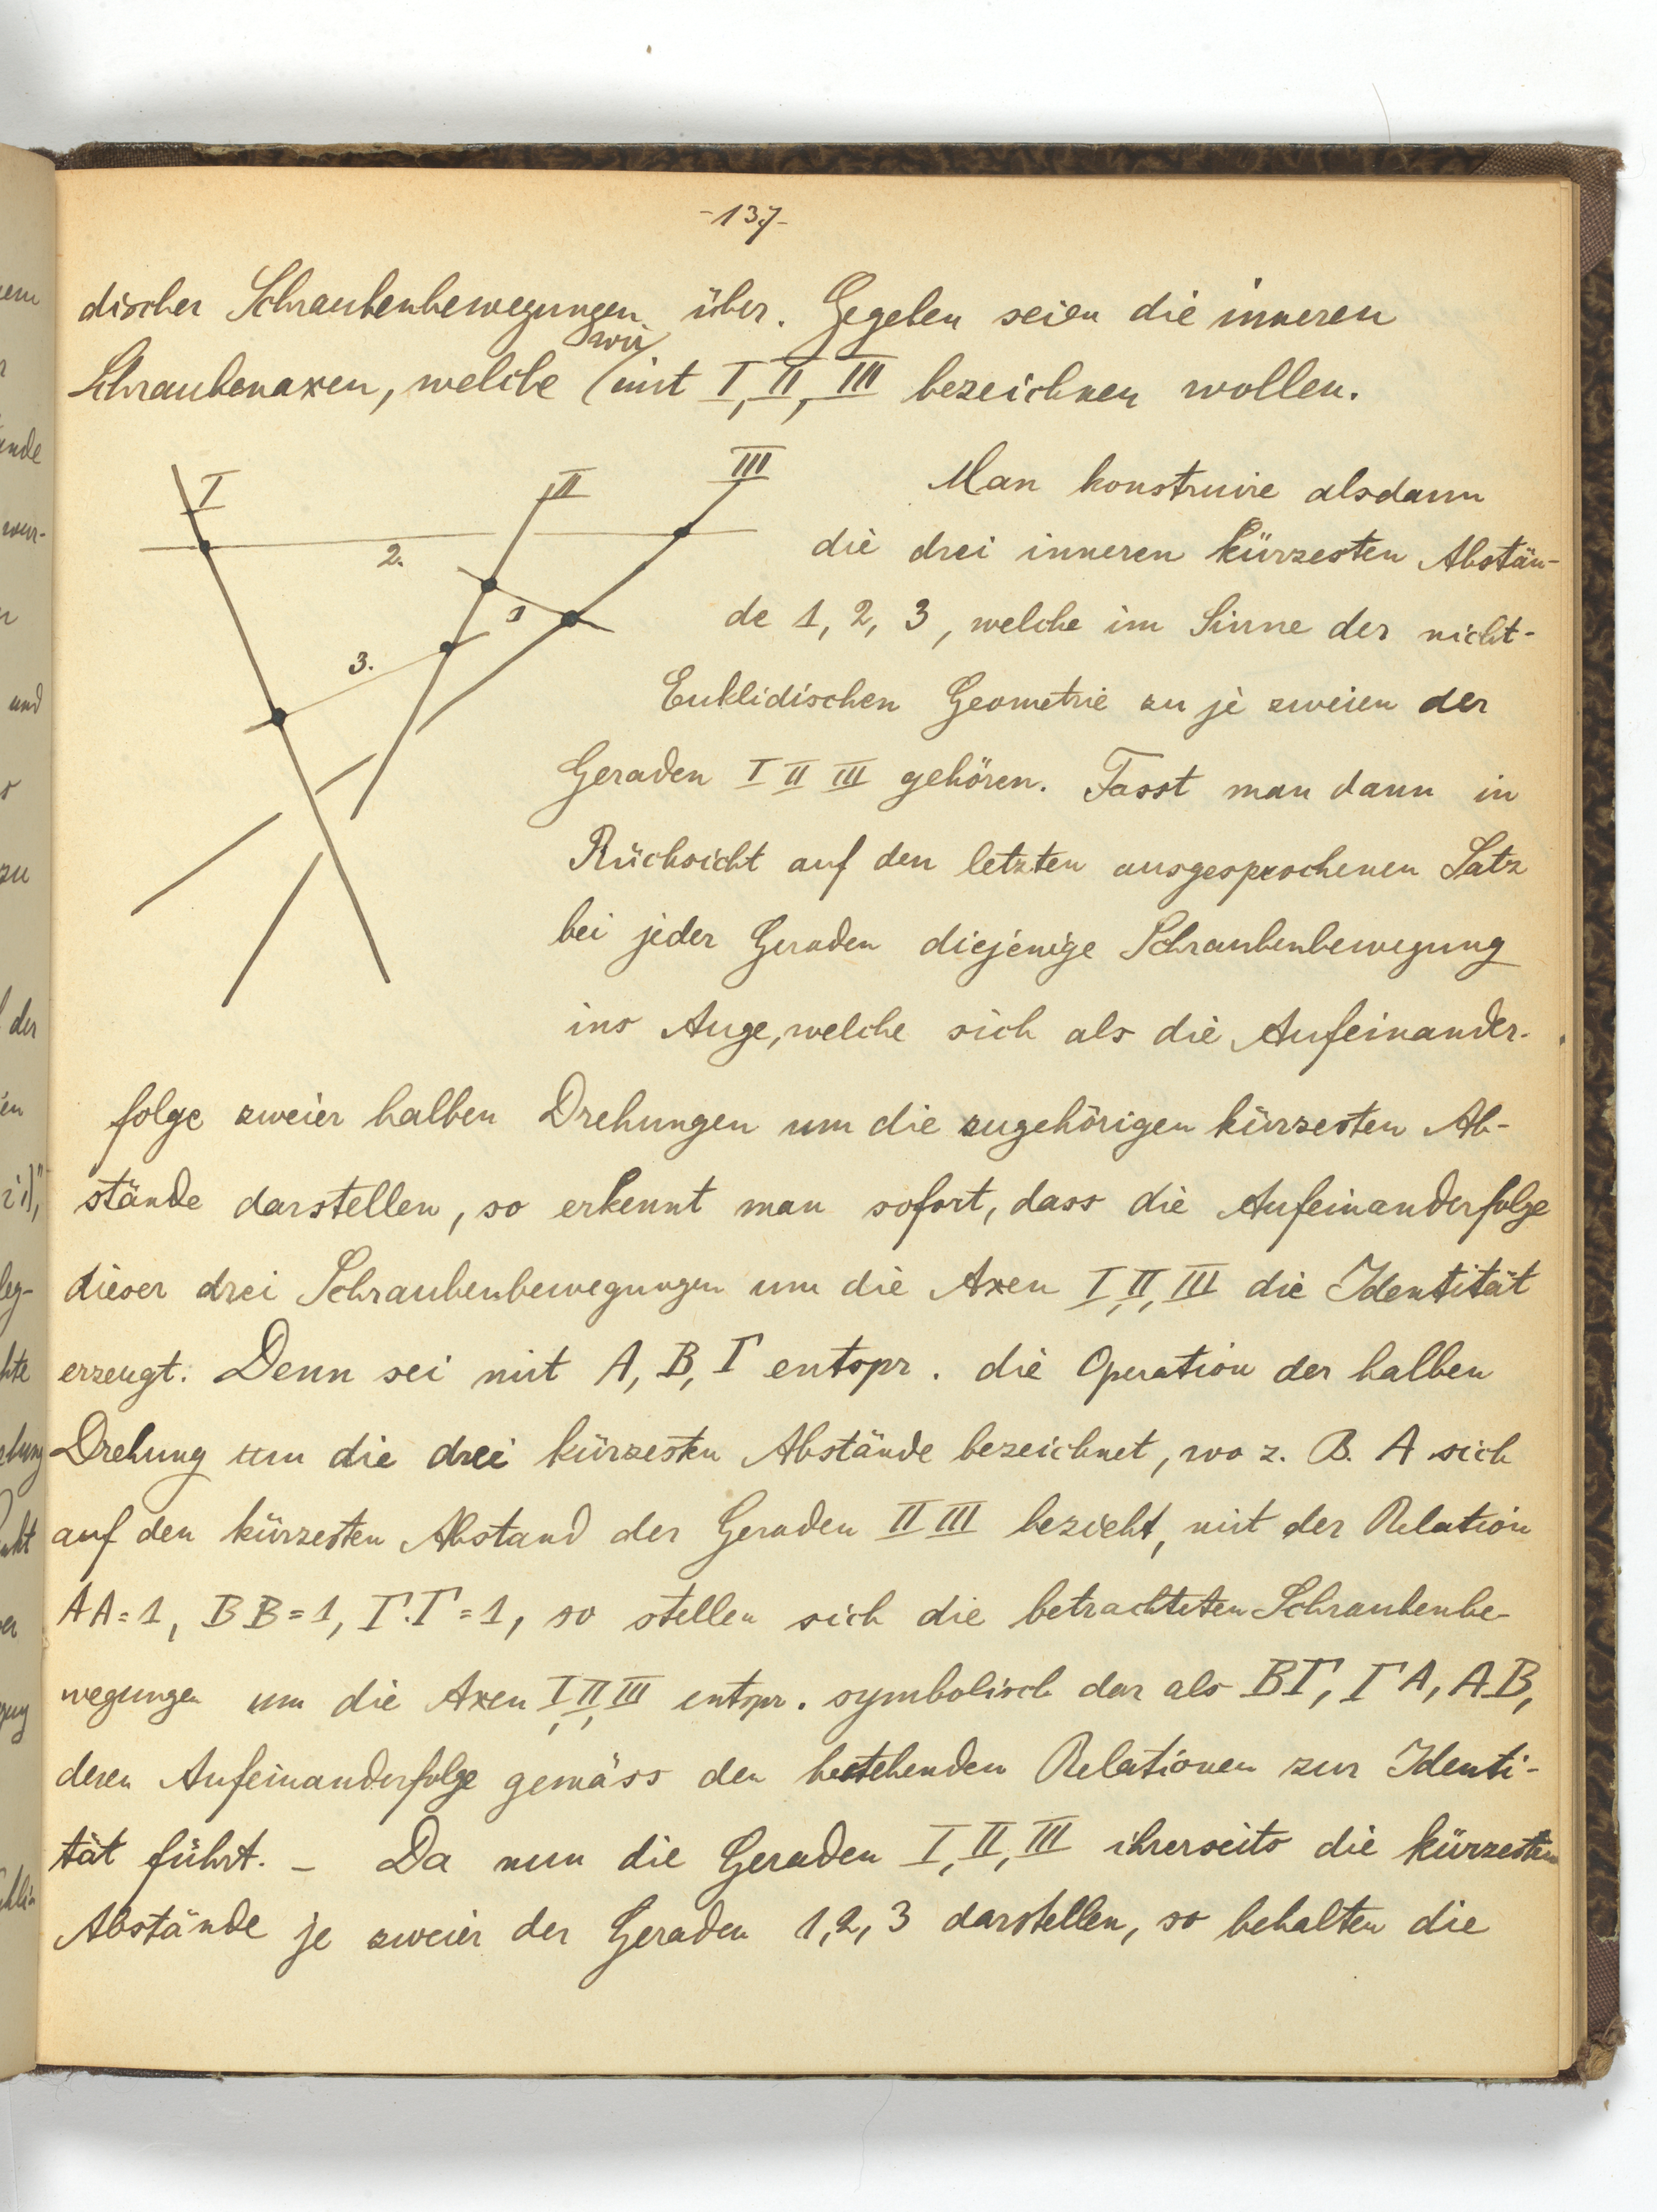 -137-
discher Schraubenbewegungen über. Gegeben seien die inneren
wir
Schraubenaxen, welche mit I, II, III bezeichnen wollen.
I
II
III
2.
1
3.
Man konstruire alsdann
die drei inneren kürzesten Abstän-
de 1, 2, 3, welche im Sinne der nicht-
Euklidischen Geometrie zu je zweien der
Geraden I II III gehören. Fasst man dann in
Rücksicht auf den letzten ausgesprochenen Satz
bei jeder Geraden diejenige Schraubenbewegung
ins Auge, welche sich als die Aufeinander-
folge zweier halben Drehungen um die zugehörigen kürzesten Ab-
stände darstellen, so erkennt man sofort, dass die Aufeinanderfolge
dieser drei Schraubenbewegungen um die Axen I, II, III die Identität
erzeugt. Denn sei mit A, B, Γ entspr. die Operation der halben
Drehung um die drei kürzesten Abstände bezeichnet, wo z. B. A sich
auf den kürzesten Abstand der Geraden II III bezieht, mit der Relation
AA=1, BB=1, Γ.Γ=1, so stellen sich die betrachteten Schraubenbe-
wegungen um die Axen I, II, III entspr. symbolisch dar als BΓ, ΓA, AB,
deren Aufeinanderfolge gemäss den bestehenden Relationen zur Identi-
tät führt. – Da nun die Geraden I, II, III ihrerseits die kürzesten
Abstände je zweier der Geraden 1, 2, 3 darstellen, so behalten die